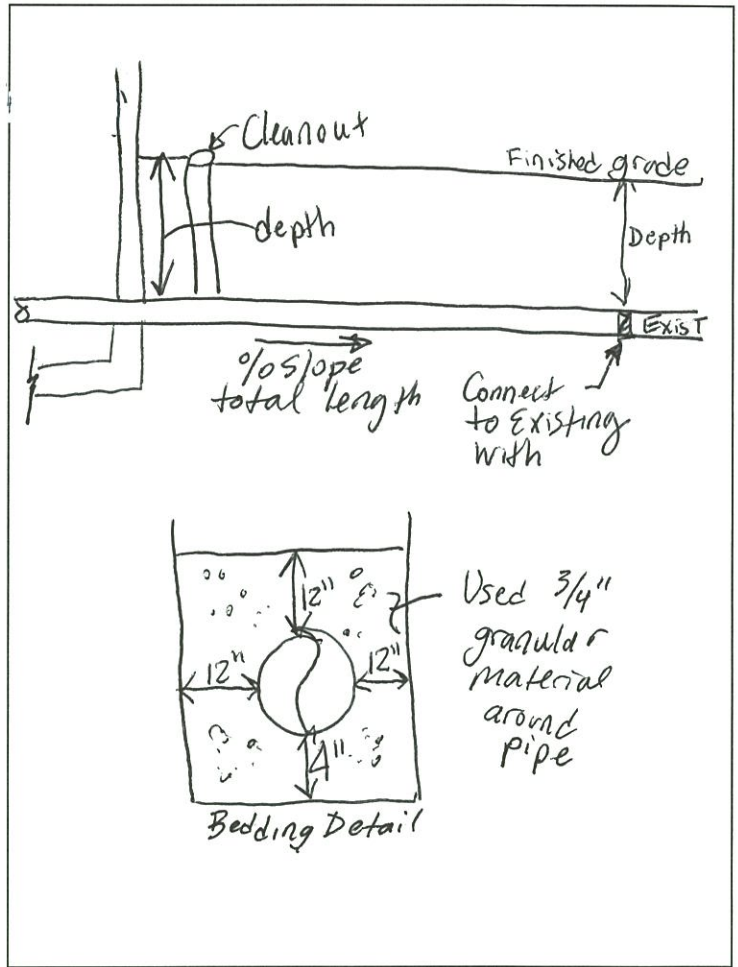 Cleanout
Finished grade
depth
Depth
EXIST
% Slope
total length
Connect
to Existing
with
12"
12"
12"
4"
Used 3/4"
granular
material
around
pipe
Bedding Detail